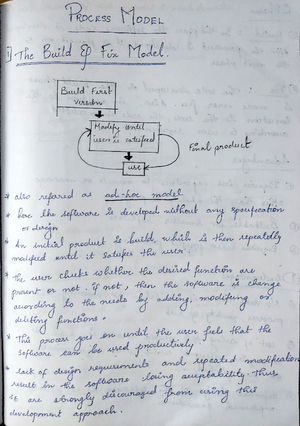 PROCESS MODEL
1) The Build & Fix Model
Build First
version
Modify until
user is satisfeed
Final product
use
* also referred as ad-hoc model
* here the software is developed without any specification
or design
* An initial product is build, which is then repeatedly
modified until it satisfies the user.
* the user checks whether the desired function are
present or not. if not, then the software is change
according to the needs by adding, modifying or
deleting functions.
* This process goes on until the user feels that the
software can be used productively
* lack of design requirements and repeated modification
result in the software losing acceptability. Thus
it are strongly discouraged from using this
development approach.